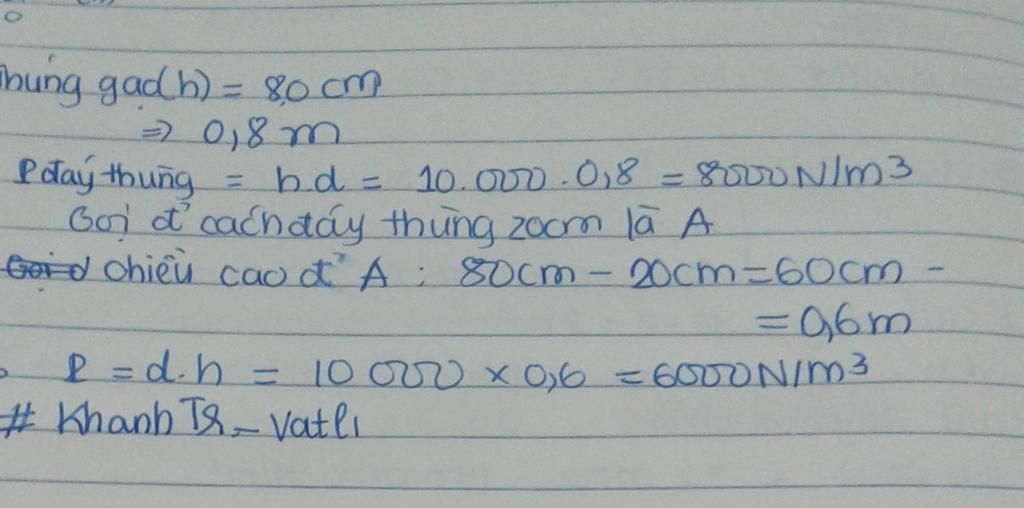 thùng gạo(h) = 80 cm
=> 0,8 m
P đáy thùng = h.d = 10.000.0,8 = 8000N/m3
Gọi đ' cách đáy thùng 20cm là A
chiều cao đ' A : 80cm - 20cm = 60cm -
= 0,6m
P = d.h = 10 000 × 0,6 = 6000N/m3
# Khanh Tr_ Vatli